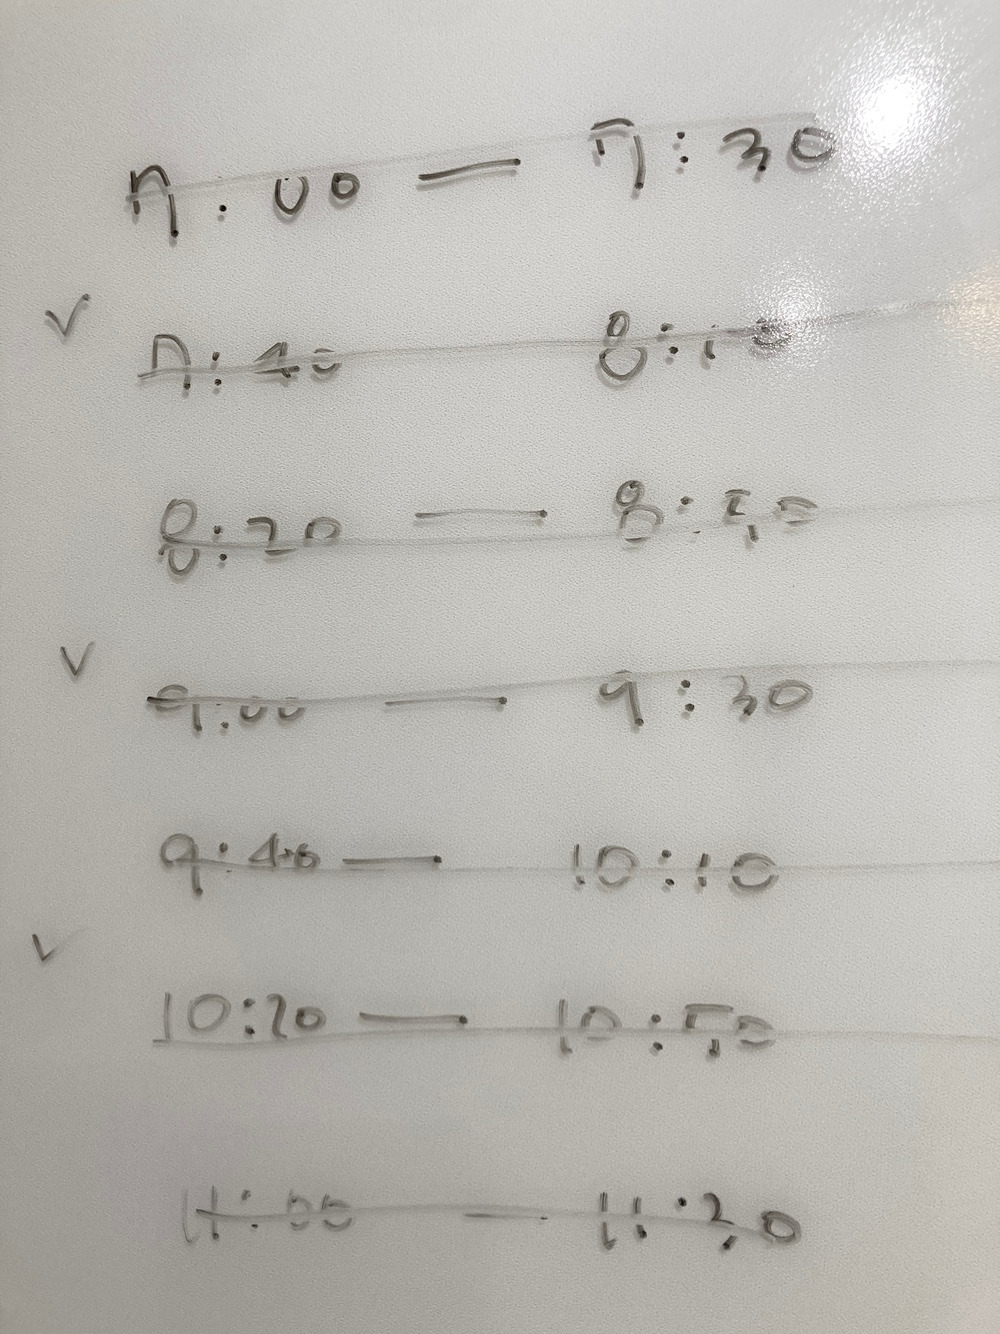 7:00 — 7:30
✓
7:40 — 8:10
8:20 — 8:50
✓
9:00 — 9:30
9:40 — 10:10
✓
10:20 — 10:50
11:00 — 11:30